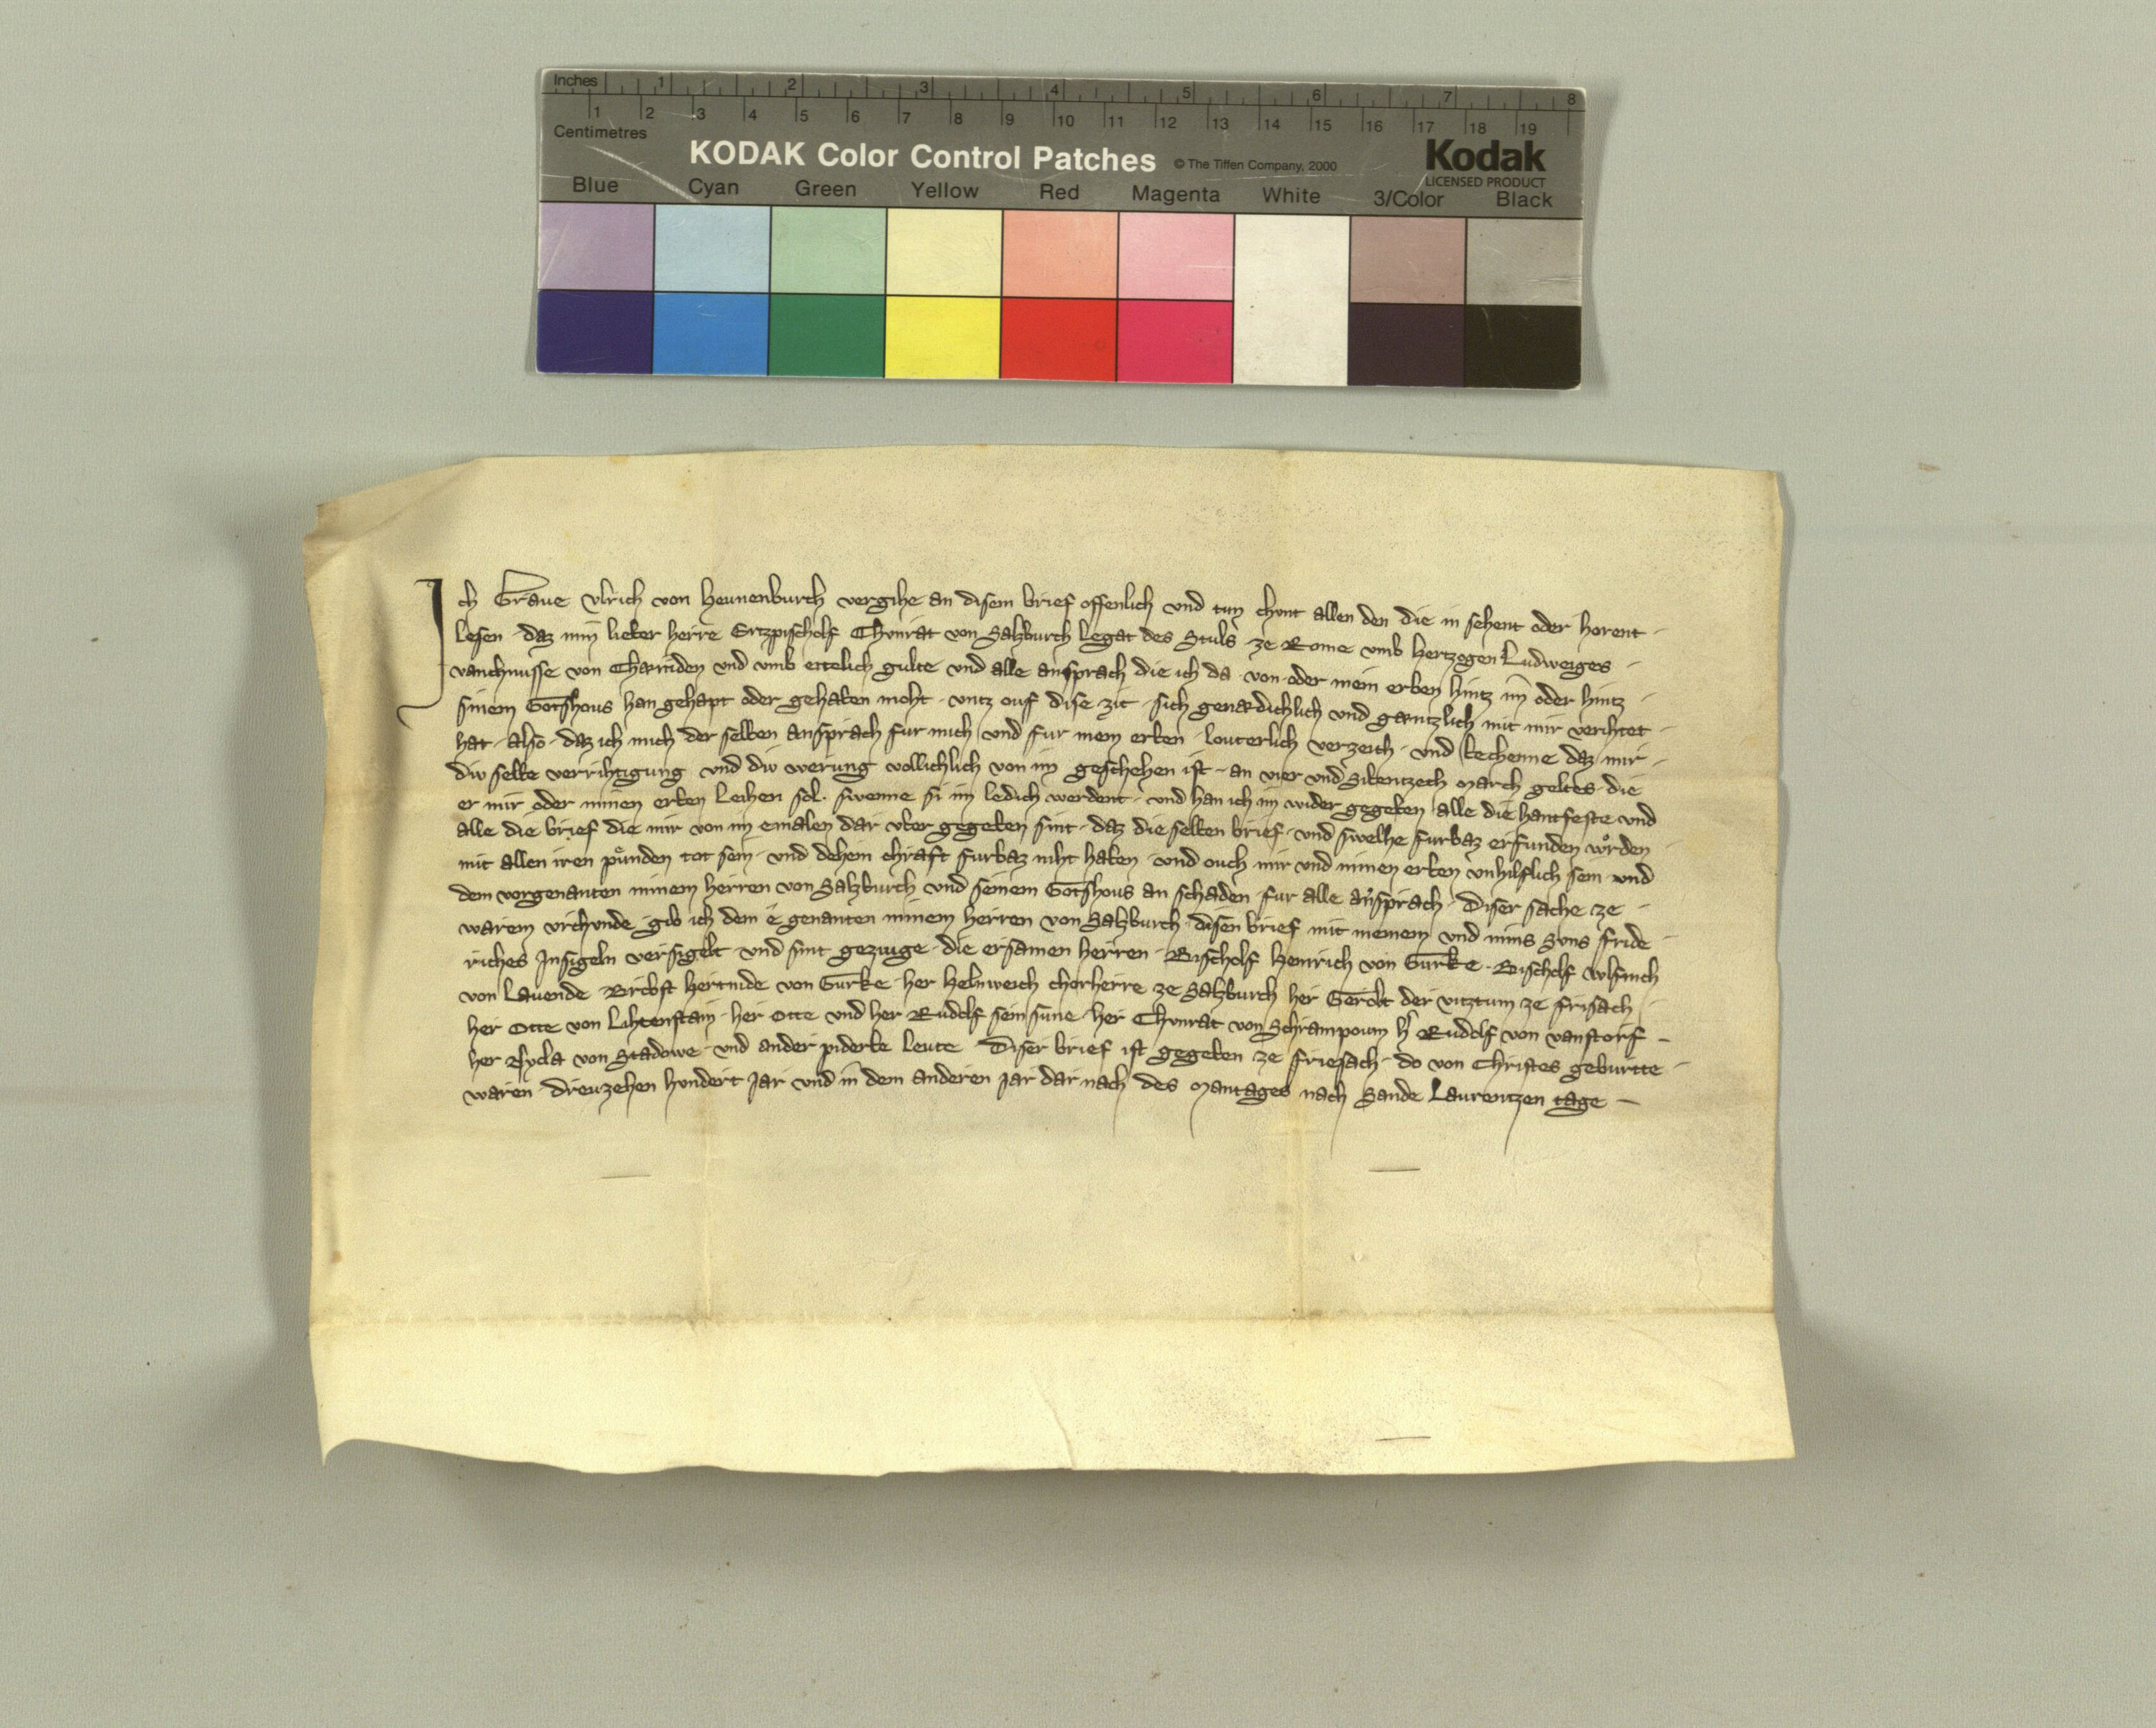 Inches 1 2 3 4 5 6 7 8
1 2 3 4 5 6 7 8 9 10 11 12 13 14 15 16 17 18 19
Centimetres
KODAK Color Control Patches © The Tiffen Company, 2000 Kodak
LICENSED PRODUCT
Blue Cyan Green Yellow Red Magenta White 3/Color Black
Ich Graue Vlrich von Heunenburch vergihe an disem brief offenlich vnd tun chunt allen den die in sehent oder horent
lesen daz min lieber herre Ertzpischolf Chunrat von Salzburch Legat des Stuls ze Rome vmb hertzogen Ludweiges
vanchnusse von Chærnden vnd vmb etteslich gulte vnd alle ansprach die ich da von oder mein erben hintz im oder hintz
sinem Gotshous han gehapt oder gehaben moht vntz ouf dise zit sich genædichlich vnd gæntzlich mit mir verihtet
hat also daz ich mich der selben ansprach fur mich vnd fur mein erben louterlich verzeich vnd bechenne daz mir
div selbe verrihtigung vnd div werung vollichlich von im geschehen ist an vier vnd Sibentzech March geltes die
er mir oder minen erben Leihen sol swenne si im ledich werdent vnd han ich im wider gegeben alle die hantfeste vnd
alle die brief die mir von im emalen dar vber gegeben sint daz die selben brief vnd swelhe furbaz erfunden wurden
mit allen iren punden tot sein vnd dehein chraft furbaz niht haben vnd ouch mir vnd minen erben vnhilflich sein vnd
dem vorgenanten minem herren von Salzburch vnd seinem Gotshous an schaden fur alle ansprach Diser sache ze
warem vrchunde gib ich dem e genanten minem herren von Salzburch disen brief mit meinem vnd mins Suns Fride
riches Insigeln versigelt vnd sint gezivge die ersamen herren Bischolf Heinrich von Gurke Bischolf Wlfinch
von Lauende Brobst Hertnide von Gurke her Helmweich chorherre ze Salzburch her Gerolt der vitztum ze Frisach
her Otte von Lihtenstain her Otte vnd her Rudolf sein sune her Chunrat von Schrampoum h' Rudolf von Vanstorf
her von Stadowe vnd ander piderbe Leute Diser brief ist gegeben ze Friesach do von Christes geburtte
waren dreuzehen hundert Jar vnd in dem anderen Jar dar nach des Mantages nach Sande Laurentzen tage